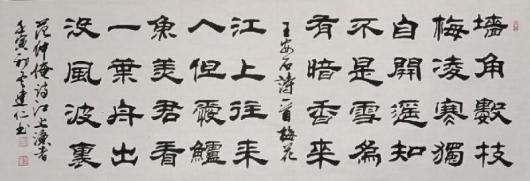 墻角數枝
梅凌寒獨
自開遥知
不是雪為
有暗香來
王安石詩一首梅花
江上往來
人但愛鱸
魚美君看
一葉舟出
沒風波裏
范仲淹詩江上漁者
壬寅初建仁书